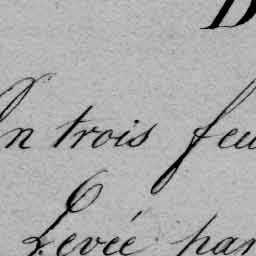 D
En trois feu
Levée par